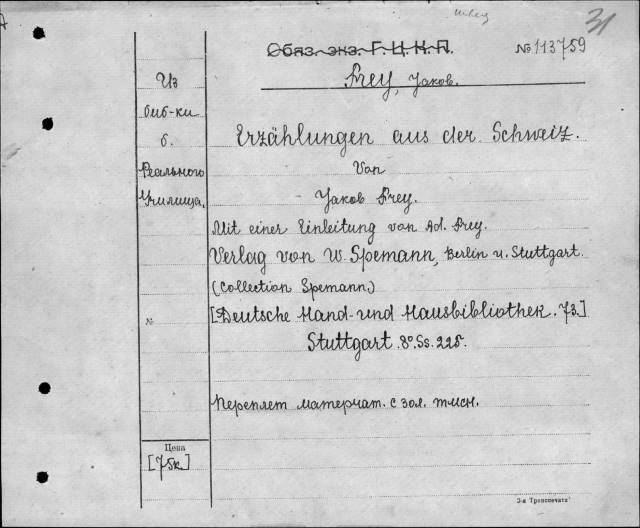 31
Обяз. экз. Г.Ц.К.П.
№ 113759
Frey, Jаков.
Из
биб-ки
б.
Реального
Училища.
Erzählungen aus der Schweiz.
Von
Jakob Frey.
Mit einer Einleitung von Ad. Frey.
Verlag von W. Spemann, Berlin u. Stuttgart.
(Collection Spemann.)
[Deutsche Hand- und Hausbibliothek. 73.]
№
Stuttgart. 8°. Ss. 225.
Переплет матерчат. с зол. тисн.
Цена
[75к.]
3-я Транспечать